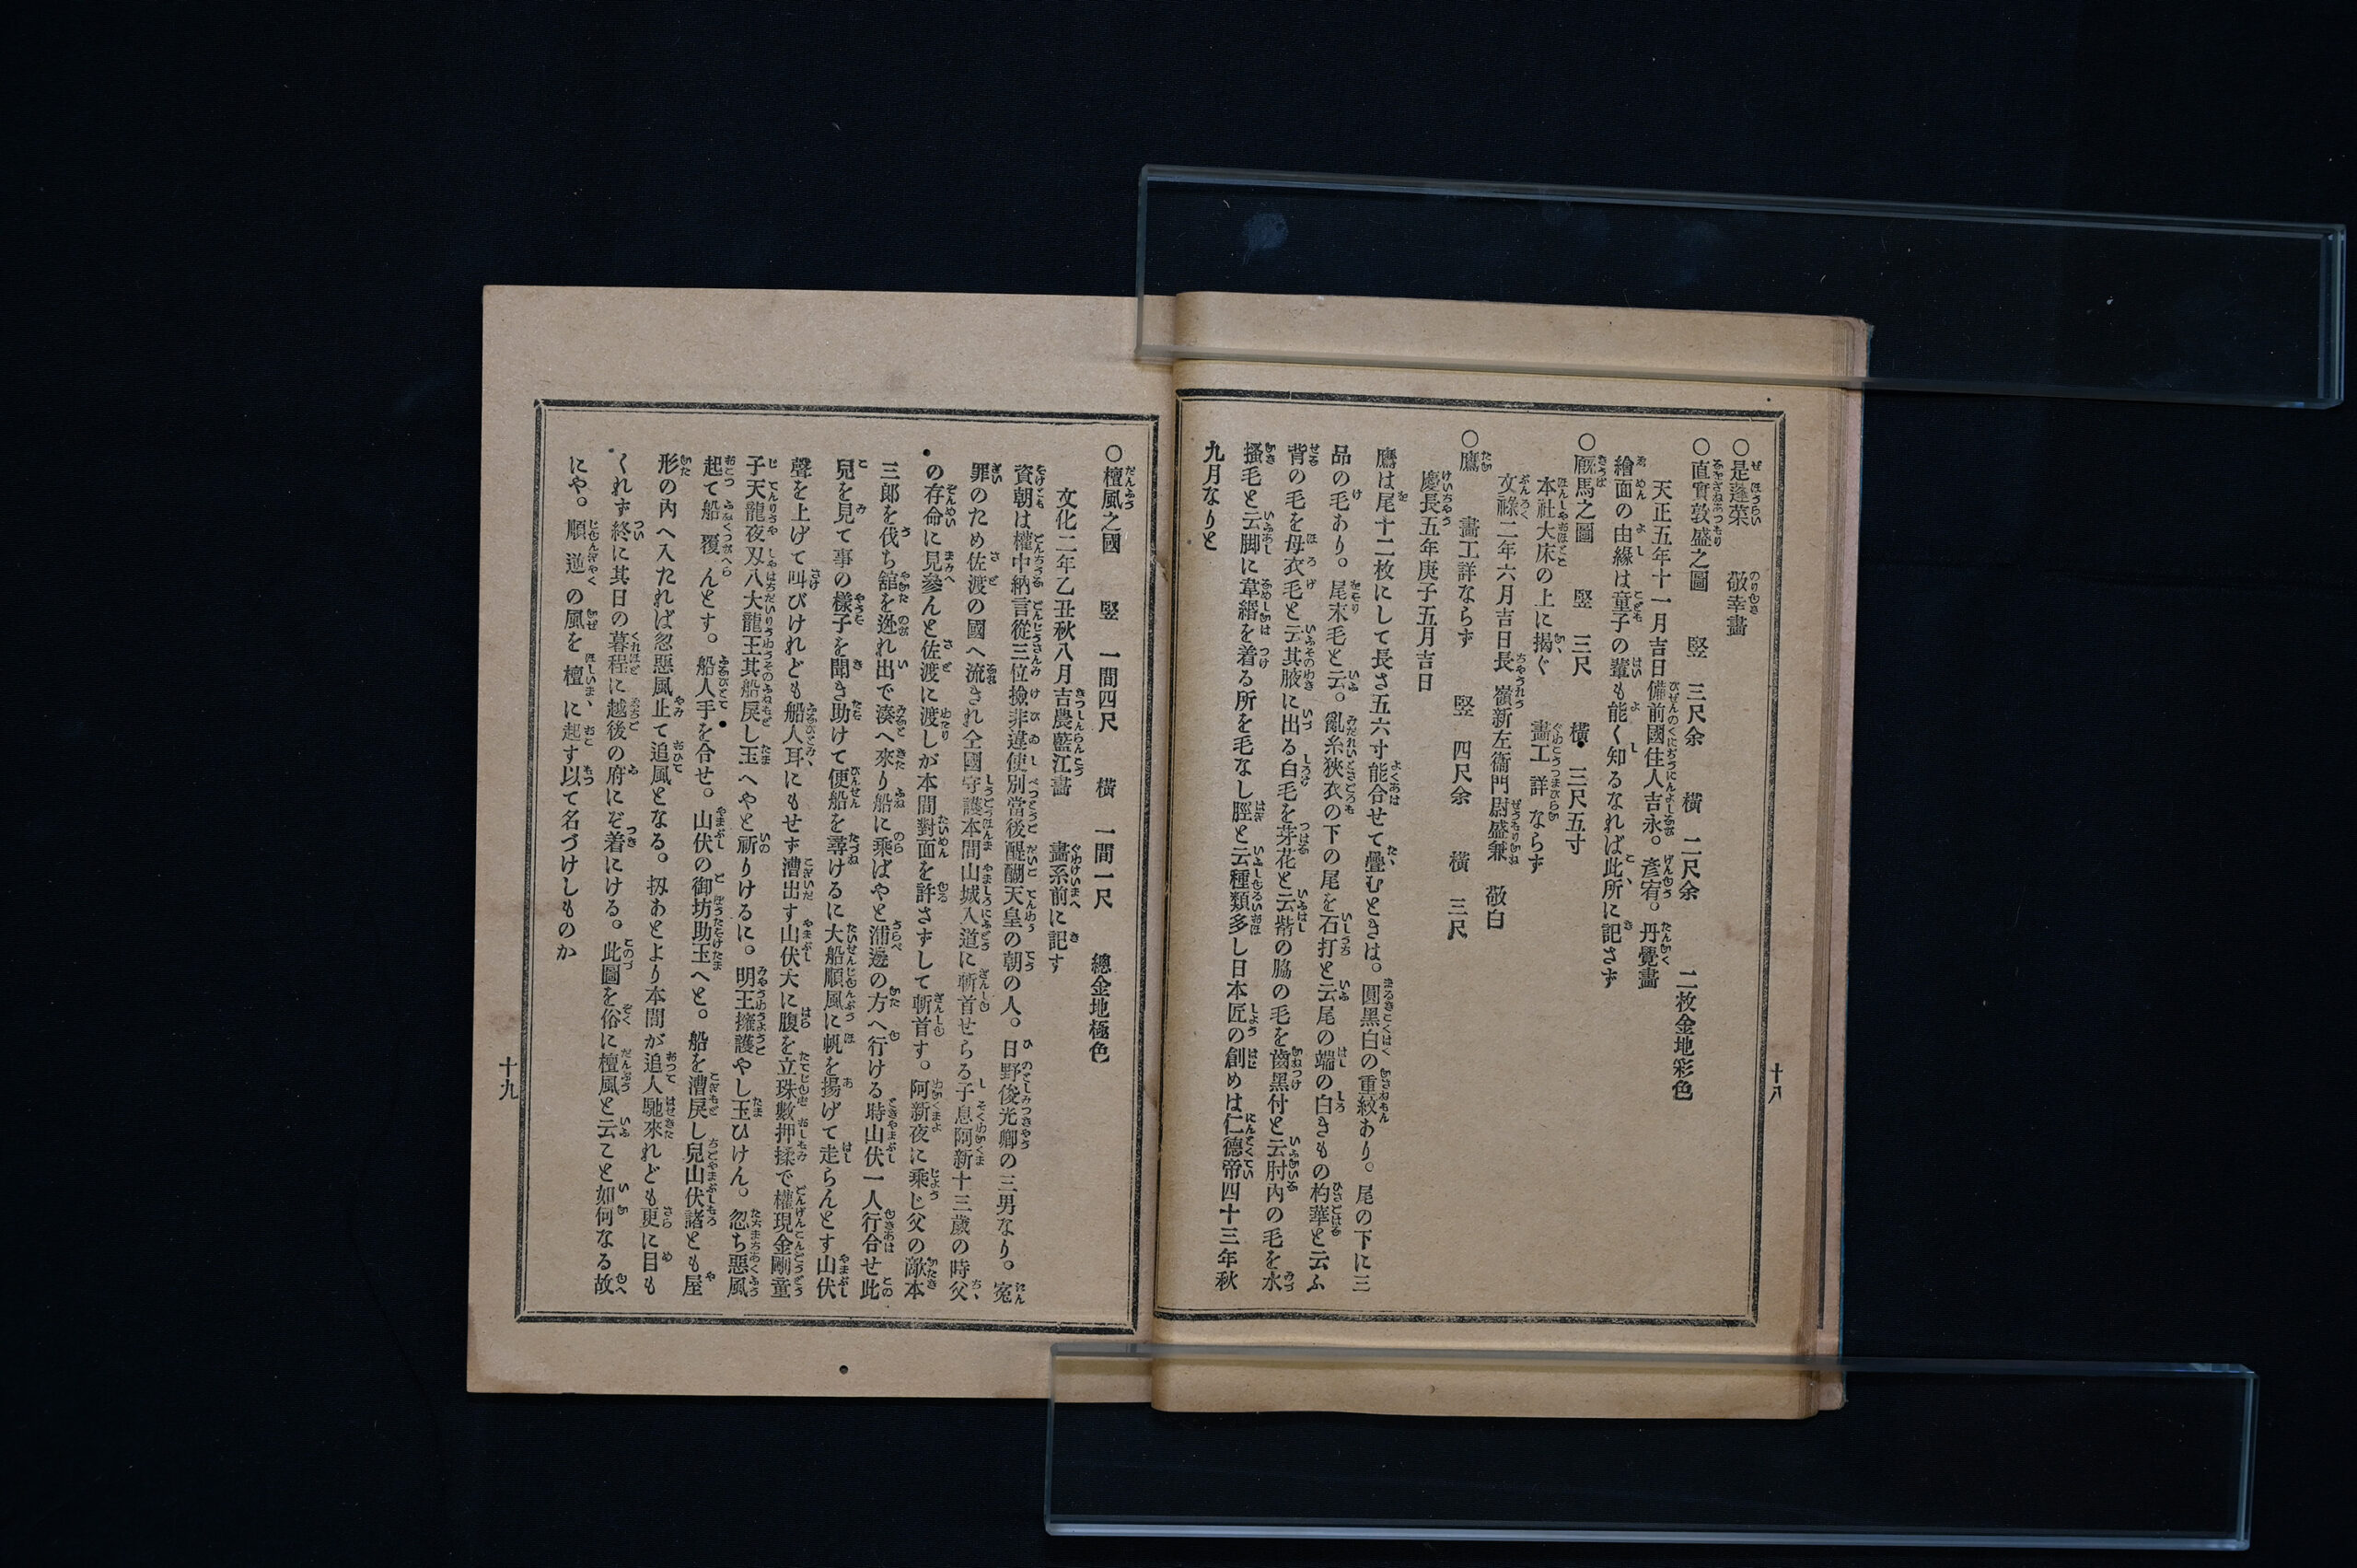 十八
○是蓬菜　敬幸畫
○直實敦盛之圖　竪　三尺余　橫　二尺余　二枚金地彩色
天正五年十一月吉日備前國住人吉永。彥宥。丹覺畫
繪面の由緣は童子の輩も能く知るなれば此所に記さず
○厩馬之圖　竪　三尺　橫　三尺五寸
本社大床の上に揭ぐ　畫工詳ならず
文祿二年六月吉日長嶺新左衞門尉盛兼　敬白
○鷹　畫工詳ならず　竪　四尺余　橫　三尺
慶長五年庚子五月吉日
鷹は尾十二枚にして長さ五六寸能合せて疊むときは。圓黑白の重紋あり。尾の下に三
品の毛あり。尾末毛と云。亂糸狹衣の下の尾を石打と云尾の端の白きもの杓華と云ふ
背の毛を母衣毛と云其腋に出る白毛を芽花と云觜の脇の毛を齒黑付と云肘內の毛を水
搔毛と云脚に韋緡を着る所を毛なし脛と云種類多し日本匠の創めは仁德帝四十三年秋
九月なりと
○檀風之國　竪　一間四尺　橫　一間一尺　總金地極色
文化二年乙丑秋八月吉農藍江畫　畫系前に記す
資朝は權中納言從三位撿非違使別當後醍醐天皇の朝の人。日野俊光卿の三男なり。寃
罪のため佐渡の國へ流され仝國守護本間山城入道に斬首せらる子息阿新十三歲の時父
の存命に見參んと佐渡に渡しが本間對面を許さずして斬首す。阿新夜に乘じ父の敵本
三郎を伐ち舘を迯れ出で湊へ來り船に乘ばやと浦邊の方へ行ける時山伏一人行合せ此
兒を見て事の樣子を聞き助けて便船を尋けるに大船順風に帆を揚げて走らんとす山伏
聲を上げて叫びけれども船人耳にもせず漕出す山伏大に腹を立珠數押揉で權現金剛童
子天龍夜叉八大龍王其船戾し玉へやと祈りけるに。明王擁護やし玉ひけん。忽ち惡風
起て船覆んとす。船人手を合せ。山伏の御坊助玉へと。船を漕戾し兒山伏諸とも屋
形の內へ入たれば忽惡風止て追風となる。扨あとより本間が追人馳來れども更に目も
くれず終に其日の暮程に越後の府にぞ着にける。此圖を俗に檀風と云こと如何なる故
にや。順逆の風を檀に起す以て名づけしものか
十九